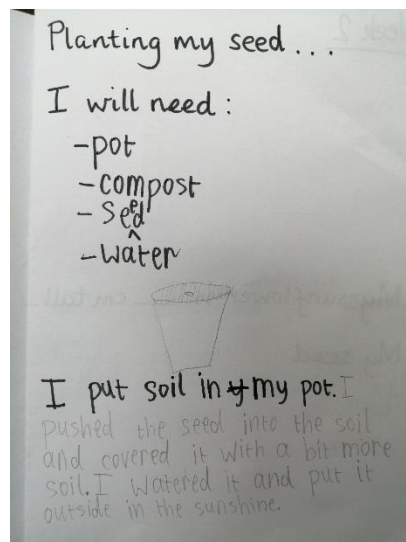 Planting my seed...
I will need:
-pot
-compost
-seed
-water
I put soil in my pot. I
pushed the seed into the soil
and covered it with a bit more
soil. I watered it and put it
outside in the sunshine.